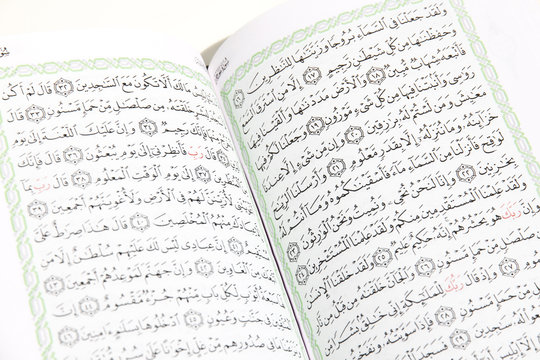 وَلَقَدْ جَعَلْنَا فِي ٱلسَّمَآءِ بُرُوجًا وَزَيَّنَّٰهَا لِلنَّٰظِرِينَ ١٦
وَحَفِظْنَٰهَا مِن كُلِّ شَيْطَٰنٍ رَّجِيمٍ ١٧ إِلَّا مَنِ ٱسْتَرَقَ ٱلسَّمْعَ
فَأَتْبَعَهُۥ شِهَابٌ مُّبِينٌ ١٨ وَٱلْأَرْضَ مَدَدْنَٰهَا وَأَلْقَيْنَا فِيهَا
رَوَٰسِيَ وَأَنۢبَتْنَا فِيهَا مِن كُلِّ شَيْءٍ مَّوْزُونٍ ١٩ وَجَعَلْنَا لَكُمْ فِيهَا
مَعَٰيِشَ وَمَن لَّسْتُمْ لَهُۥ بِرَٰزِقِينَ ٢٠ وَإِن مِّن شَيْءٍ إِلَّا عِندَنَا
خَزَآئِنُهُۥ وَمَا نُنَزِّلُهُۥٓ إِلَّا بِقَدَرٍ مَّعْلُومٍ ٢١ وَأَرْسَلْنَا ٱلرِّيَٰحَ
لَوَٰقِحَ فَأَنزَلْنَا مِنَ ٱلسَّمَآءِ مَآءً فَأَسْقَيْنَٰكُمُوهُ وَمَآ أَنتُمْ لَهُۥ
بِخَٰزِنِينَ ٢٢ وَإِنَّا لَنَحْنُ نُحْيِۦ وَنُمِيتُ وَنَحْنُ ٱلْوَٰرِثُونَ ٢٣
وَلَقَدْ عَلِمْنَا ٱلْمُسْتَقْدِمِينَ مِنكُمْ وَلَقَدْ عَلِمْنَا ٱلْمُسْتَـْٔخِرِينَ ٢٤
وَإِنَّ رَبَّكَ هُوَ يَحْشُرُهُمْ إِنَّهُۥ حَكِيمٌ عَلِيمٌ ٢٥ وَلَقَدْ خَلَقْنَا ٱلْإِنسَٰنَ
مِن صَلْصَٰلٍ مِّنْ حَمَإٍ مَّسْنُونٍ ٢٦ وَٱلْجَآنَّ خَلَقْنَٰهُ مِن قَبْلُ مِن نَّارِ
٢٧ وَإِذْ قَالَ رَبُّكَ لِلْمَلَٰٓئِكَةِ إِنِّي خَٰلِقٌۢ بَشَرًا
مِّنْ حَمَإٍ مَّسْنُونٍ ٢٨
مَا لَكَ أَلَّا تَكُونَ مَعَ ٱلسَّٰجِدِينَ ٣٢ قَالَ لَمْ أَكُن
خَلَقْتَهُۥ مِن صَلْصَٰلٍ مِّنْ حَمَإٍ مَّسْنُونٍ ٣٣ قَالَ
رَجِيمٌ ٣٤ وَإِنَّ عَلَيْكَ ٱللَّعْنَةَ إِلَىٰ يَوْمِ
٣٥ قَالَ رَبِّ فَأَنظِرْنِيٓ إِلَىٰ يَوْمِ يُبْعَثُونَ ٣٦ قَالَ فَإِنَّكَ
٣٧ إِلَىٰ يَوْمِ ٱلْوَقْتِ ٱلْمَعْلُومِ ٣٨ قَالَ رَبِّ بِمَآ
لَهُمْ فِي ٱلْأَرْضِ وَلَأُغْوِيَنَّهُمْ أَجْمَعِينَ ٣٩
مِنْهُمُ ٱلْمُخْلَصِينَ ٤٠ قَالَ هَٰذَا صِرَٰطٌ عَلَيَّ
٤١ إِنَّ عِبَادِي لَيْسَ لَكَ عَلَيْهِمْ سُلْطَٰنٌ إِلَّا مَنِ
مِنَ ٱلْغَاوِينَ ٤٢ وَإِنَّ جَهَنَّمَ لَمَوْعِدُهُمْ أَجْمَعِينَ ٤٣
أَبْوَٰبٍ لِّكُلِّ بَابٍ مِّنْهُمْ جُزْءٌ مَّقْسُومٌ ٤٤ إِنَّ
جَنَّٰتٍ وَعُيُونٍ ٤٥ ٱدْخُلُوهَا بِسَلَٰمٍ ءَامِنِينَ ٤٦
صُدُورِهِم مِّنْ غِلٍّ إِخْوَٰنًا عَلَىٰ